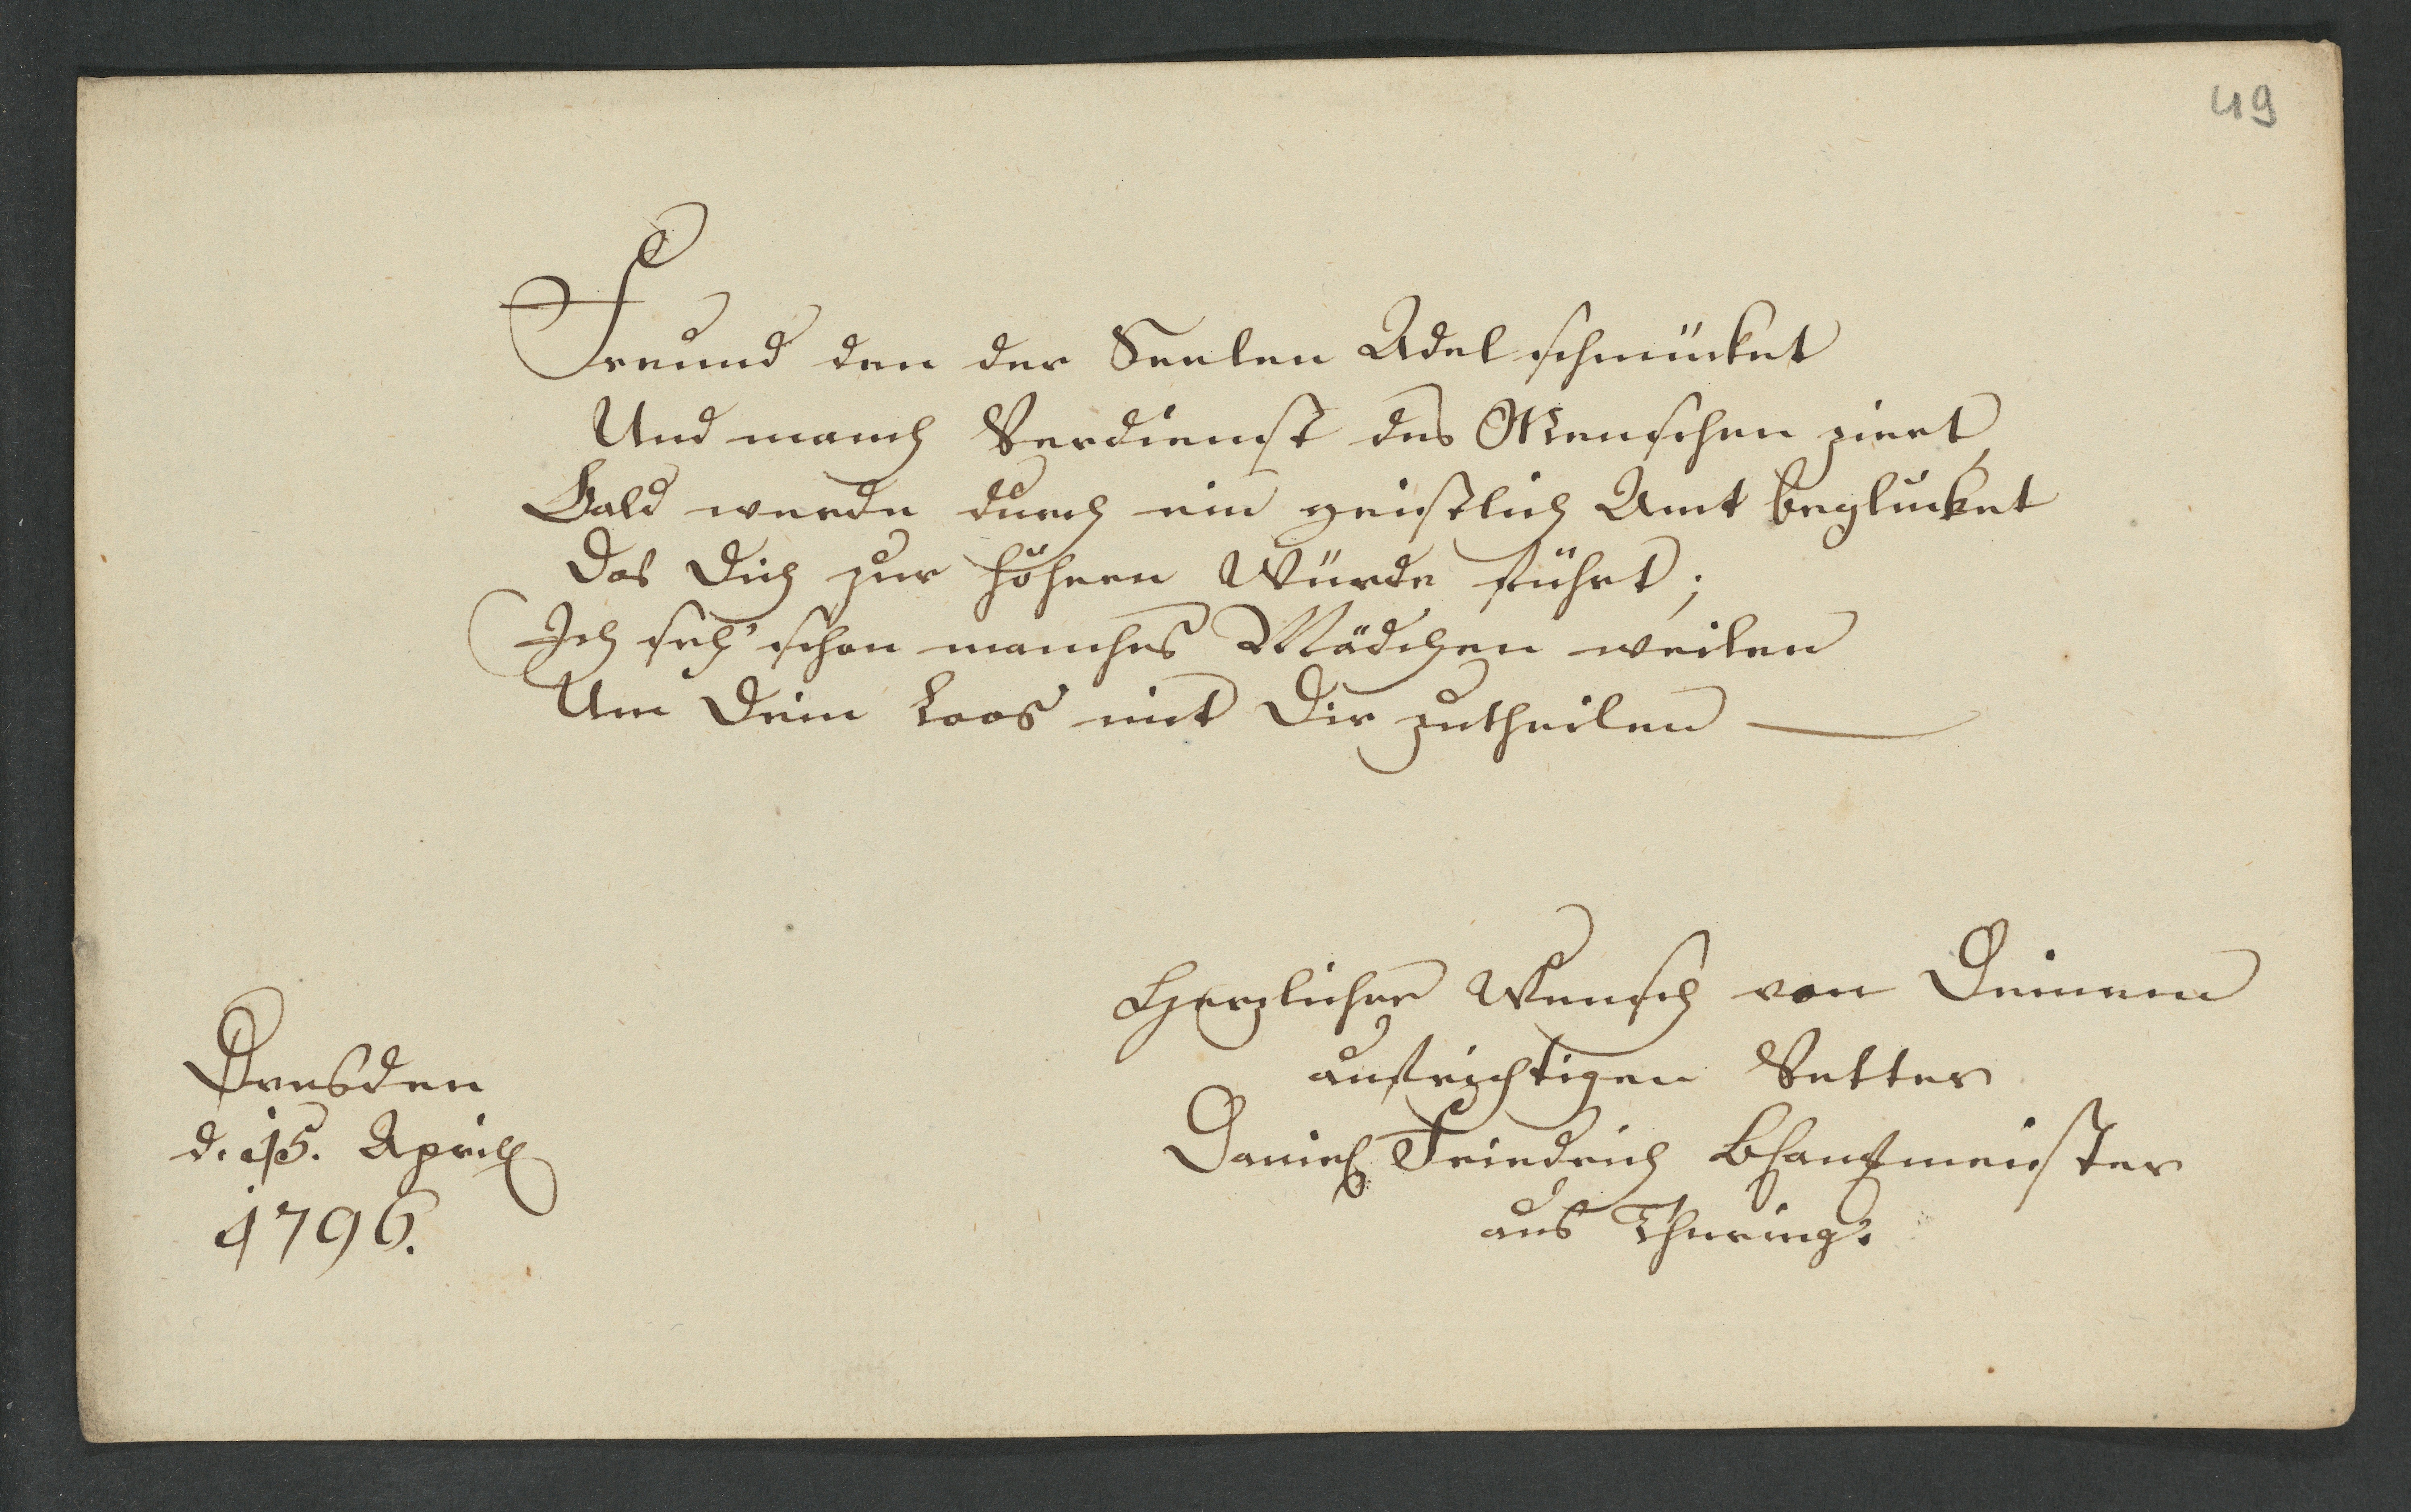 49
Freund den der Seelen Adel schmücket
Und manch Verdienst des Menschen ziert,
Bald werde durch ein geistlich Amt beglücket
Das Dich zur höhern Würde führt;
Ich seh' schon manches Mädchen weilen
Um Dein Loos mit Dir zutheilen —
Herzlicher Wunsch von Deinem
aufrichtigen Vetter
Daniel Friedrich
aus Thuring.
Dresden
d. 15. April
1796.